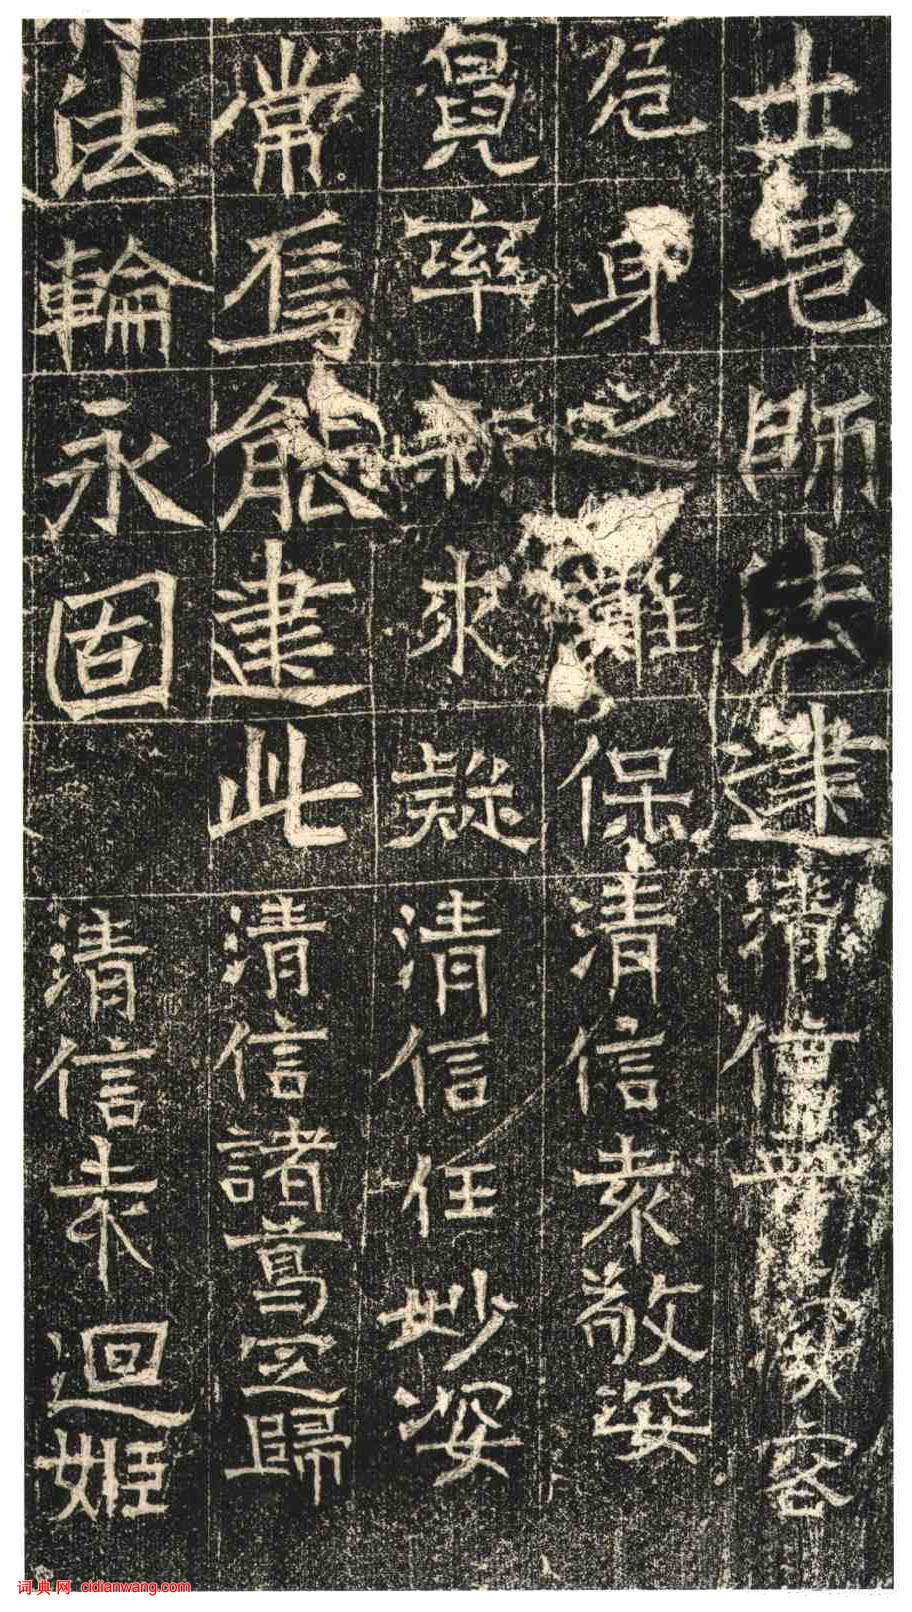 士邑師法建清信
危身之難保清信袁敬姿
覓率知求疑清信任妙姿
常焉能建此清信諸葛定歸
法輪永固清信袁迴姬
词典网 cidianwang.com